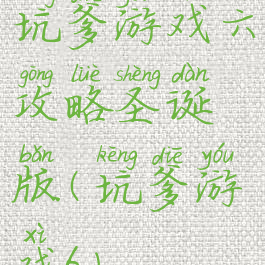 坑爹游戏六
gōng lüè shèng dàn
攻略圣诞
bǎn kēng diē yóu
版(坑爹游
xì
戏6)